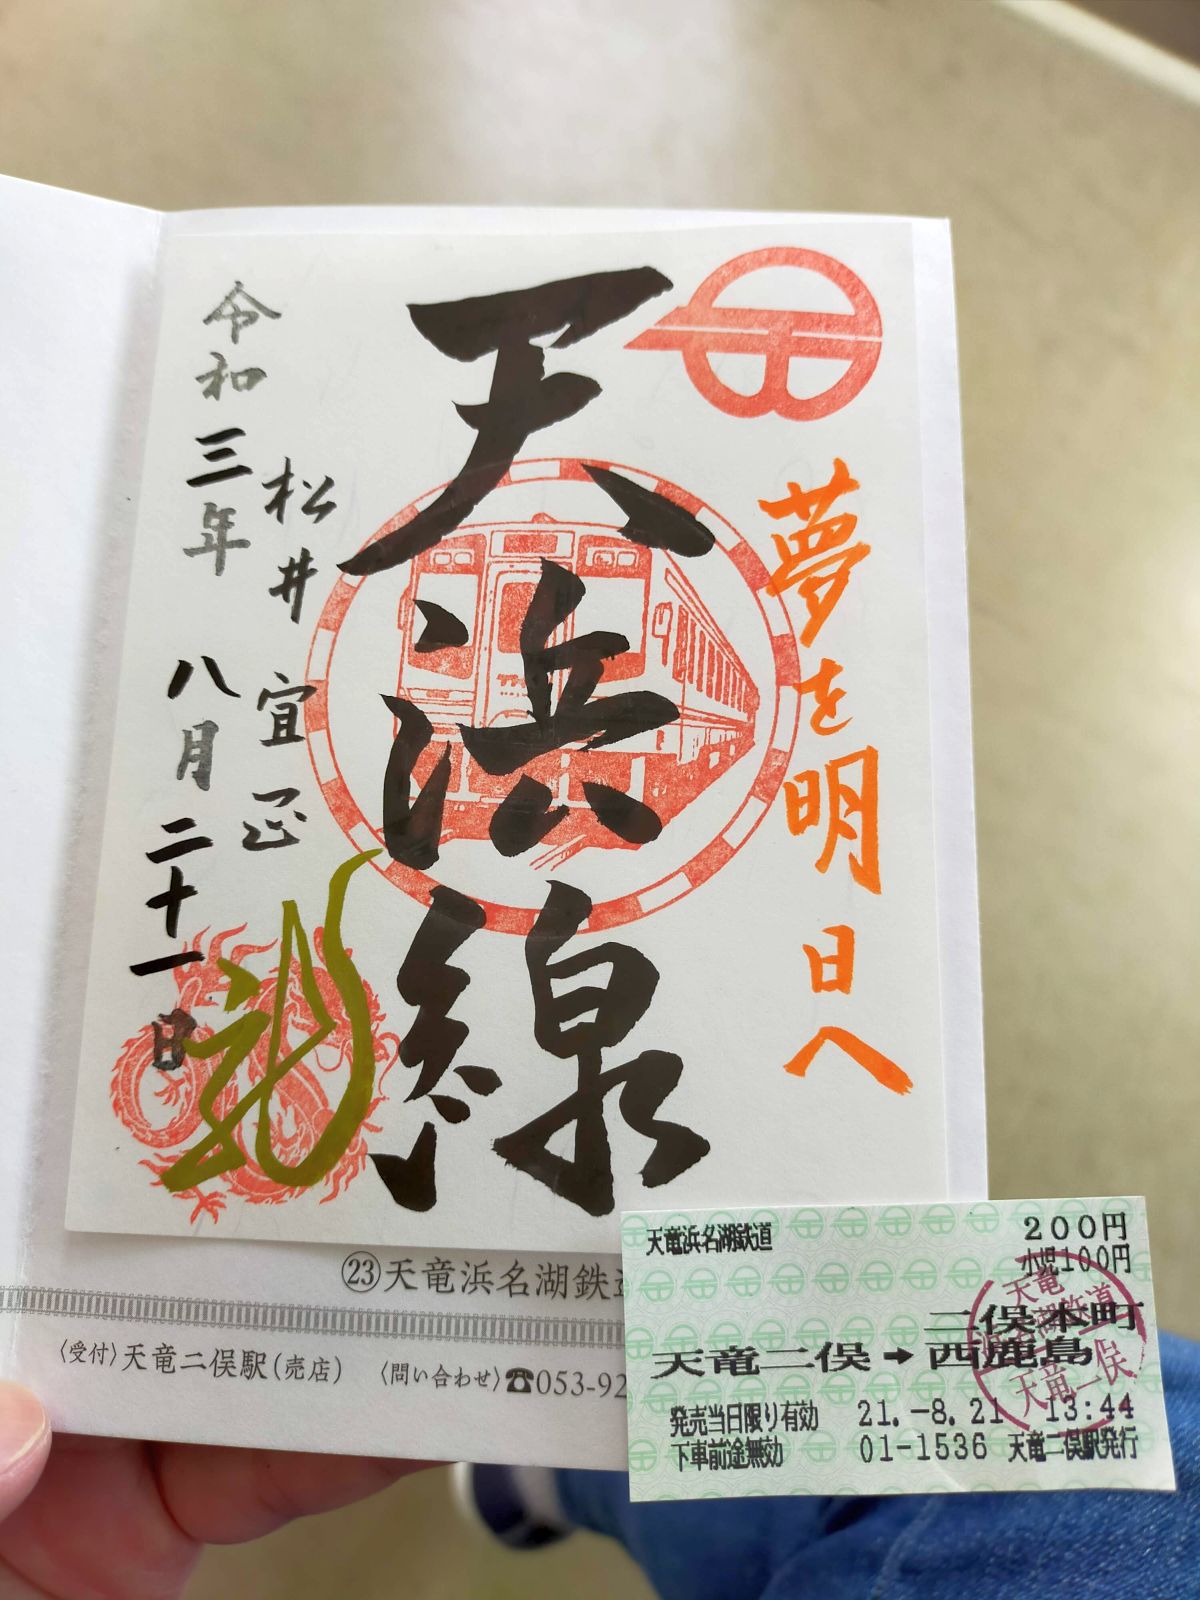 夢を明日へ
天浜線
松井宜正
令和三年 八月二十一日
㉓天竜浜名湖鉄道
〈受付〉天竜二俣駅(売店) 〈問い合わせ〉☎053-92
天竜浜名湖鉄道 200円
小児100円
二俣本町
天竜二俣➡西鹿島
発売当日限り有効 21.-8.21 13:44
下車前途無効 01-1536 天竜二俣駅発行
天竜
浜名湖鉄道
天竜二俣